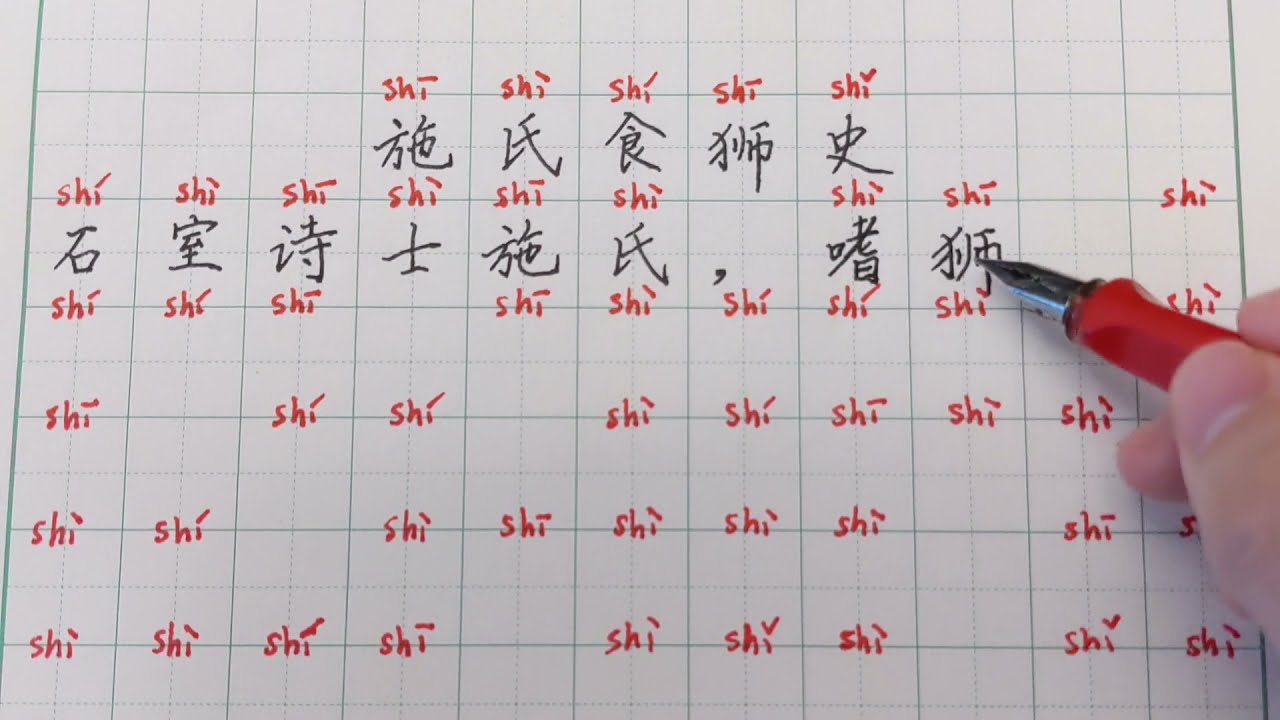 shī shì shí shī shǐ
施氏食狮史
shí shì shī shì shī shì shì shī shì
石室诗士施氏，嗜狮
shí shí shī shī shì shí shí shì shì
shī shí shí shì shí shī shì shì
shì shí shì shī shì shì shì shī
shì shì shí shī shì shǐ shì shǐ shì